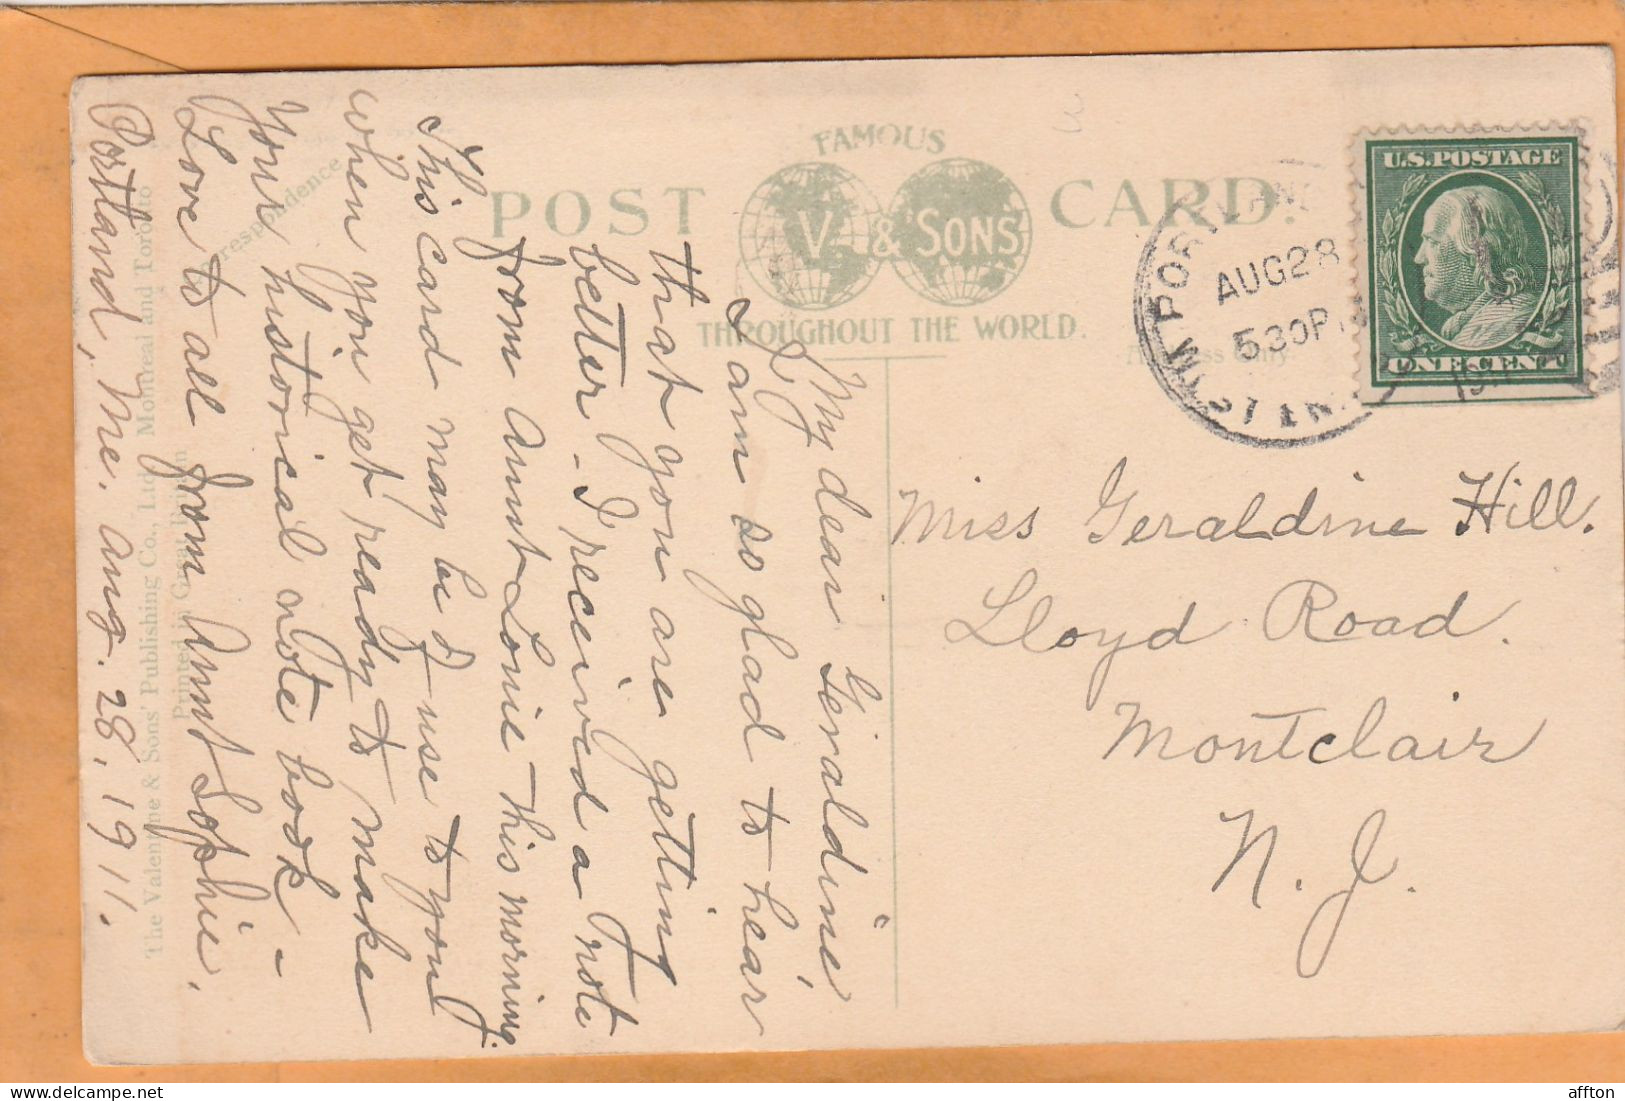 FAMOUS
POST V. & SONS CARD.
THROUGHOUT THE WORLD.
Correspondence
The Valentine & Sons' Publishing Co., Ltd. Montreal and Toronto
Printed in Great Britain
My dear Geraldine,
I am so glad to hear
that you are getting
better - I received a note
from Aunt Lonie this morning.
This card may be of use to you
when you get ready to make
your historical note book -
Love to all from Aunt Sophie.
Portland, Me. Aug. 28, 1911.
PORTLAND
AUG 28
530P
U.S. POSTAGE
ONE CENT
Miss Geraldine Hill.
Lloyd Road.
Montclair
N. J.
affton